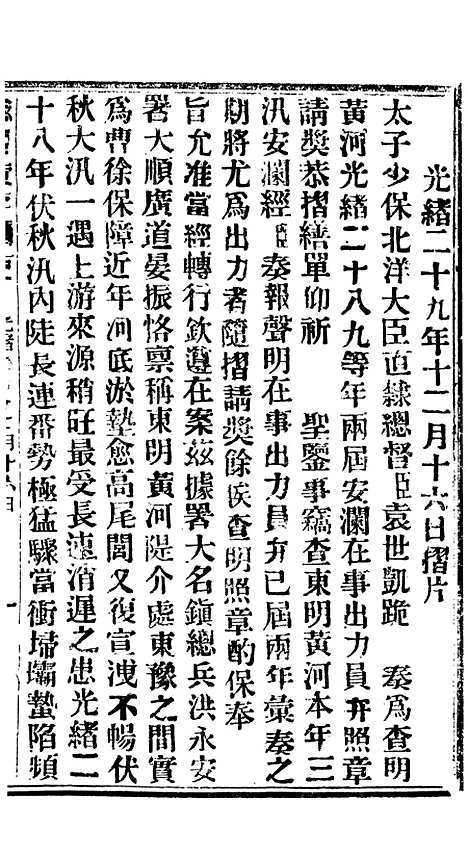 光緒二十九年十二月十六日摺片
太子少保北洋大臣直隸總督臣袁世凱跪 奏爲查明
黃河光緒二十八九等年兩屆安瀾在事出力員弁照章
請奬恭摺繕單仰祈 聖鑒事竊查東明黃河本年三
汛安瀾經臣奏報聲明在事出力員弁已屆兩年彙奏之
期將尤爲出力者隨摺請奬餘俟查明照章酌保奉
旨允准當經轉行欽遵在案茲據署大名鎮總兵洪永安
署大順廣道晏振恪禀稱東明黃河隄介處東豫之間實
爲曹徐保障近年河底淤墊愈高尾閭又復宣洩不暢伏
秋大汛一遇上游來源稍旺最受長速消遲之患光緒二
十八年伏秋汛內陡長連番勢極猛驟當衝埽壩蟄陷頻